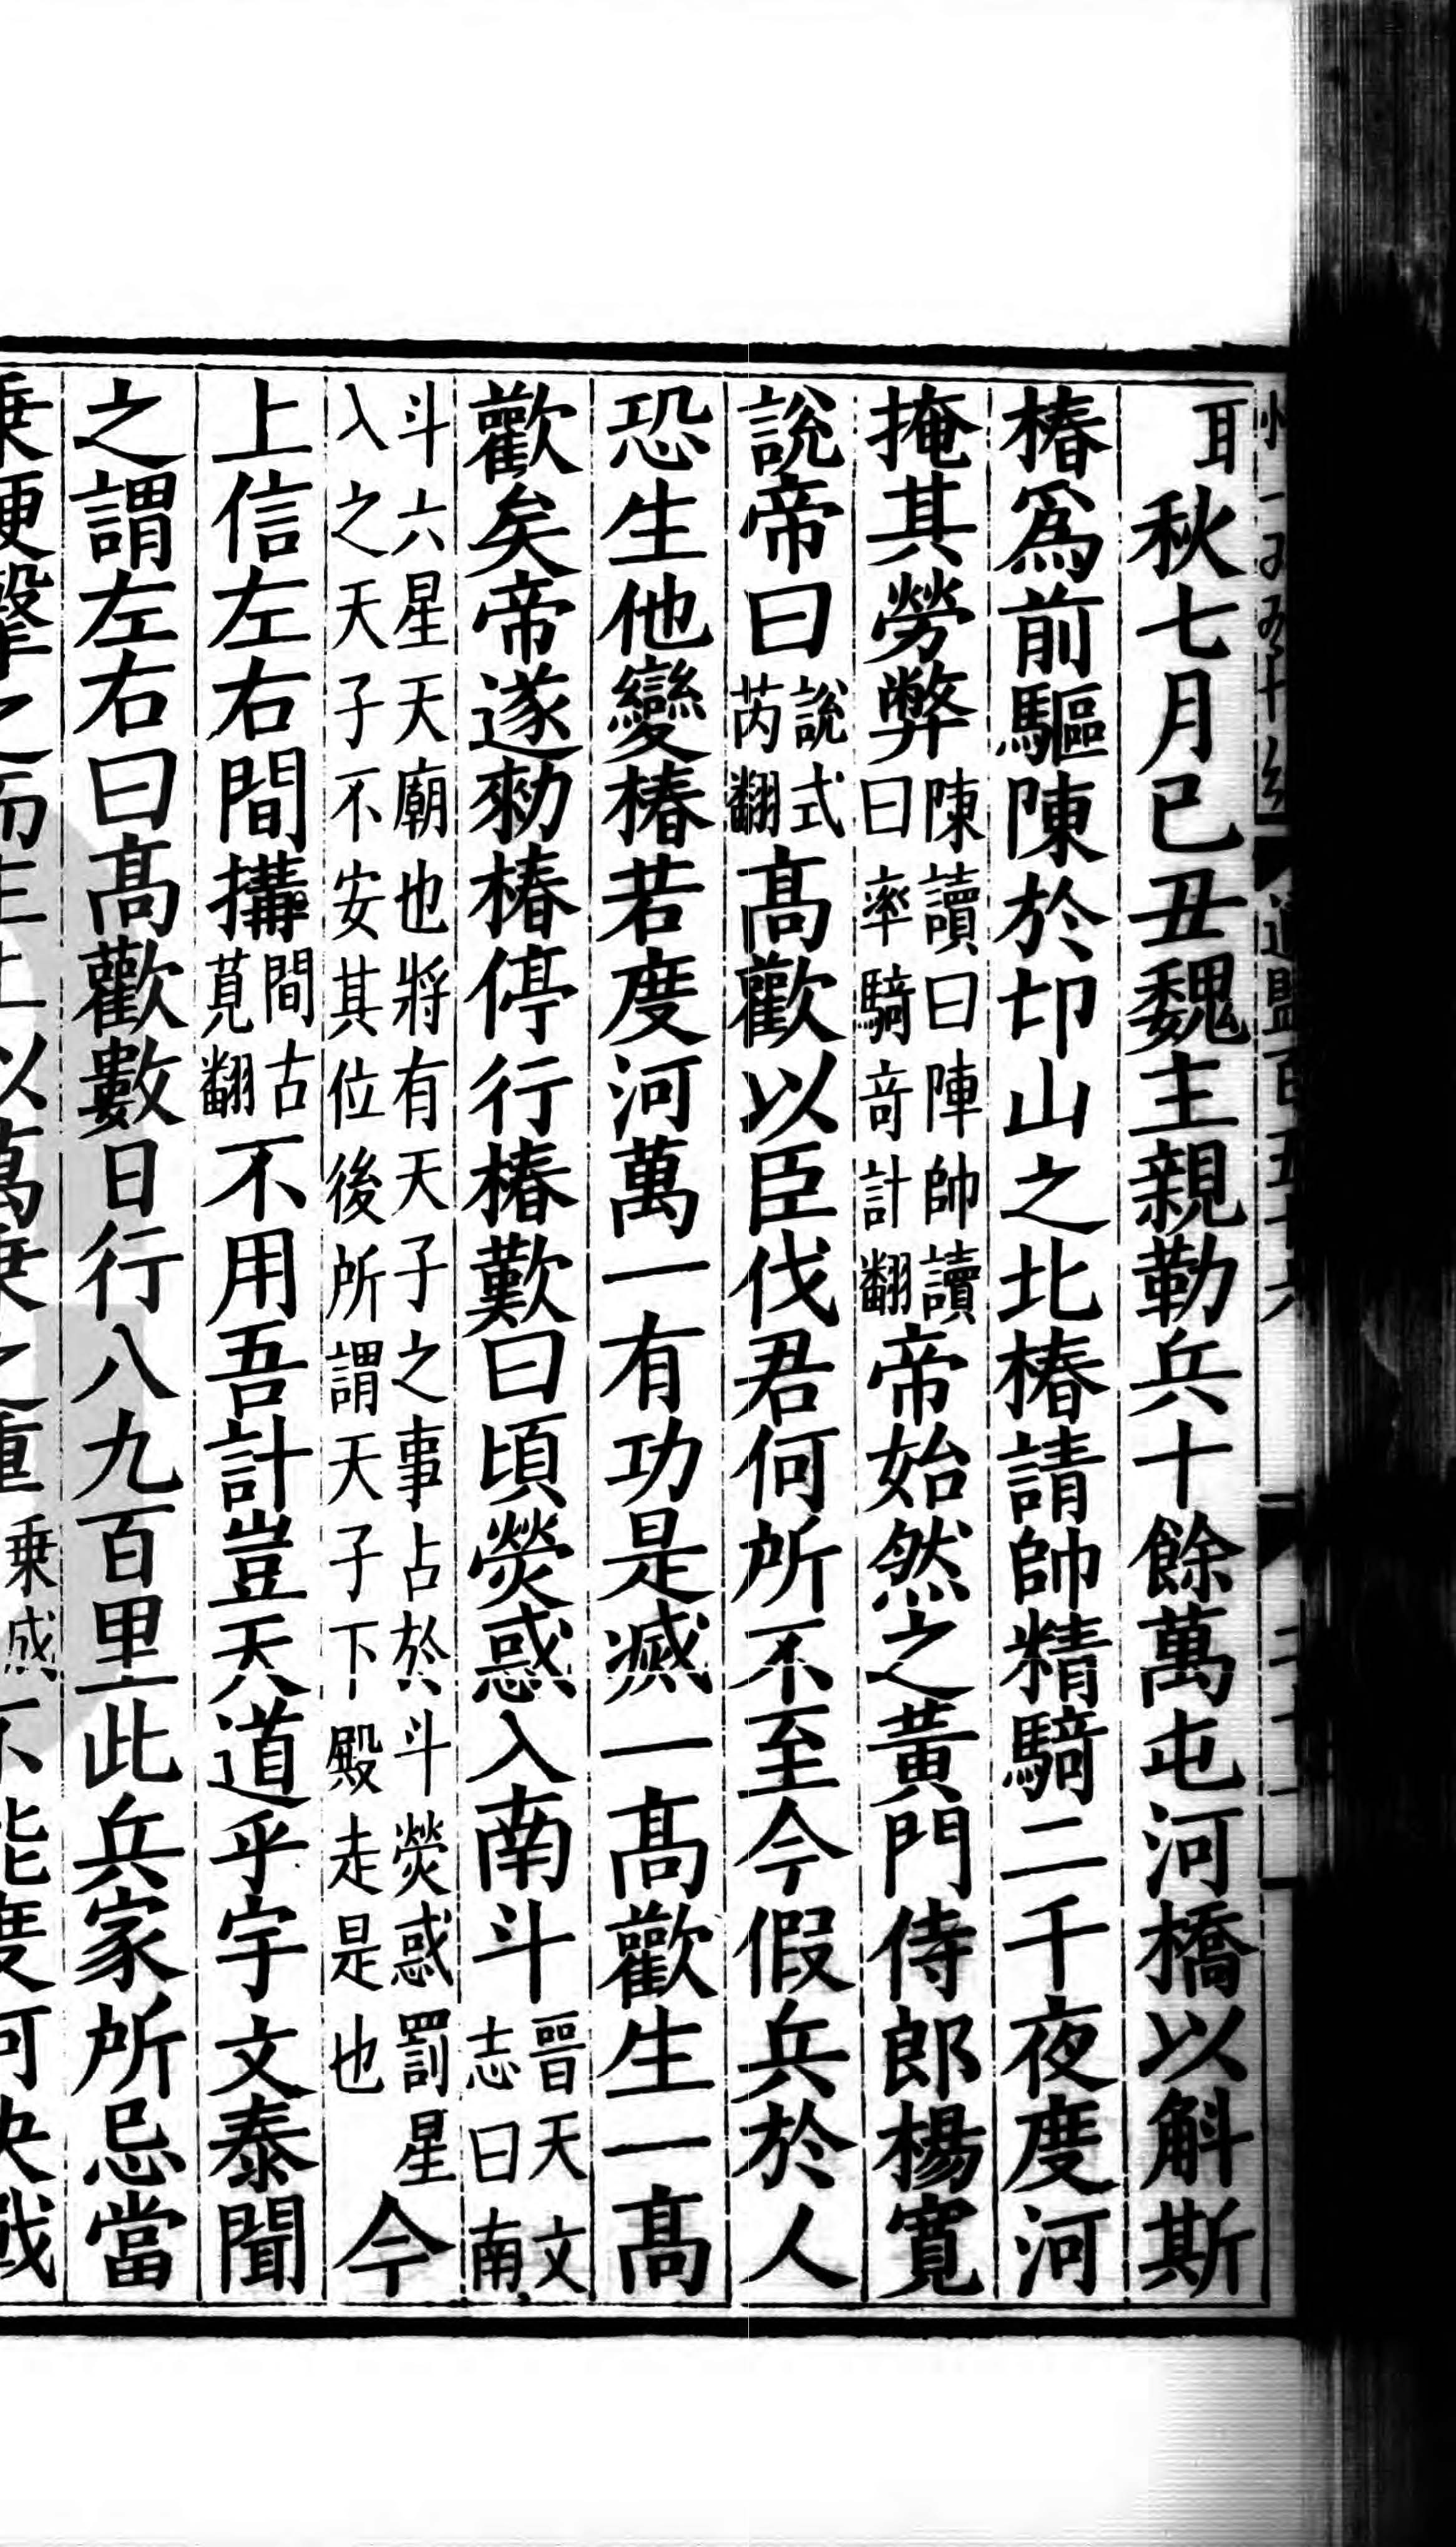 耳秋七月己丑魏主親勒兵十餘萬屯河橋以斛斯
椿爲前驅陳於邙山之北椿請帥精騎二千夜度河
掩其勞弊陳讀曰陣帥讀曰率騎竒計翻帝始然之黃門侍郎楊寬
說帝曰說式芮翻髙歡以臣伐君何所不至今假兵於人
恐生他變椿若度河萬一有功是滅一髙歡生一髙
歡矣帝遂勑椿停行椿歎曰頃熒惑入南斗晉天文志曰南
斗六星天廟也將有天子之事占於斗熒惑罰星入之天子不安其位後所謂天子下殿走是也今
上信左右間搆間古莧翻不用吾計豈天道乎宇文泰聞
之謂左右曰髙歡數日行八九百里此兵家所忌當
乗便擊之而主上以萬乗之重乗

不能度河決戰